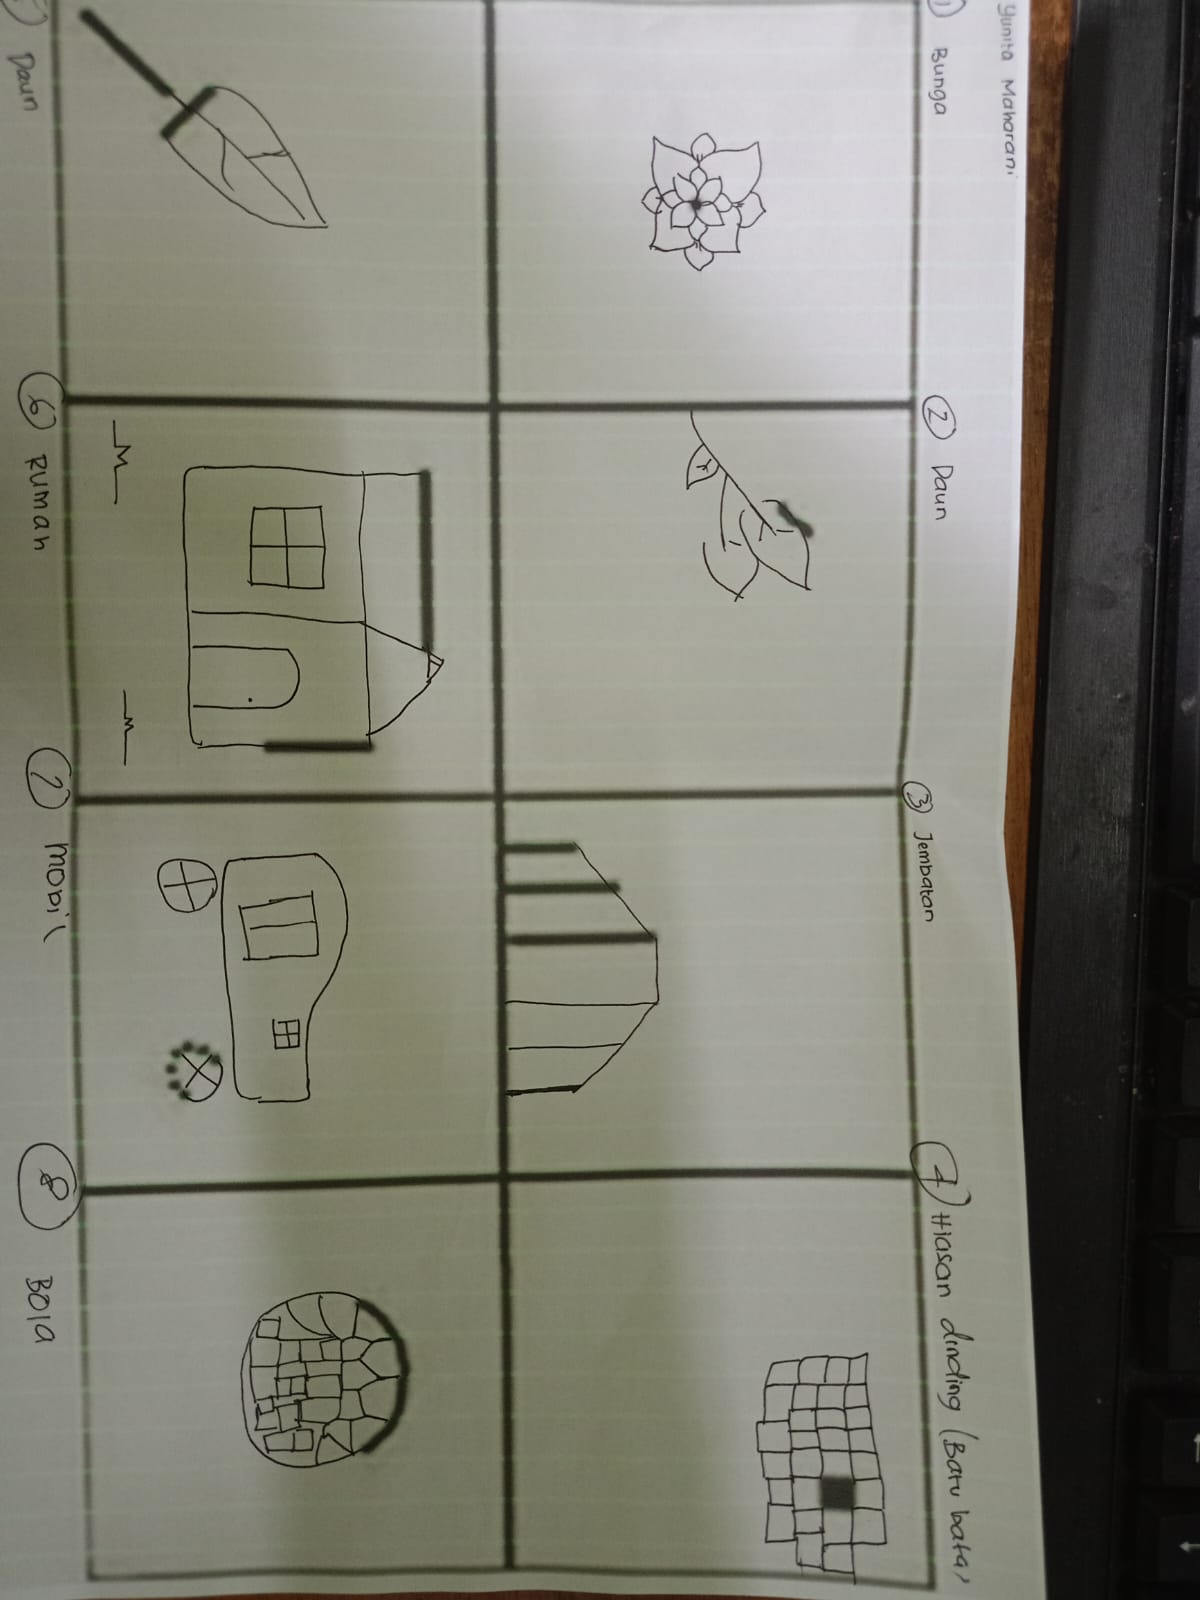 Yunita Maharani
1) Bunga
2 Daun
3 Jembatan
4 Hiasan dinding (Batu bata)
5 Daun
6 Rumah
7 Mobil
8 Bola